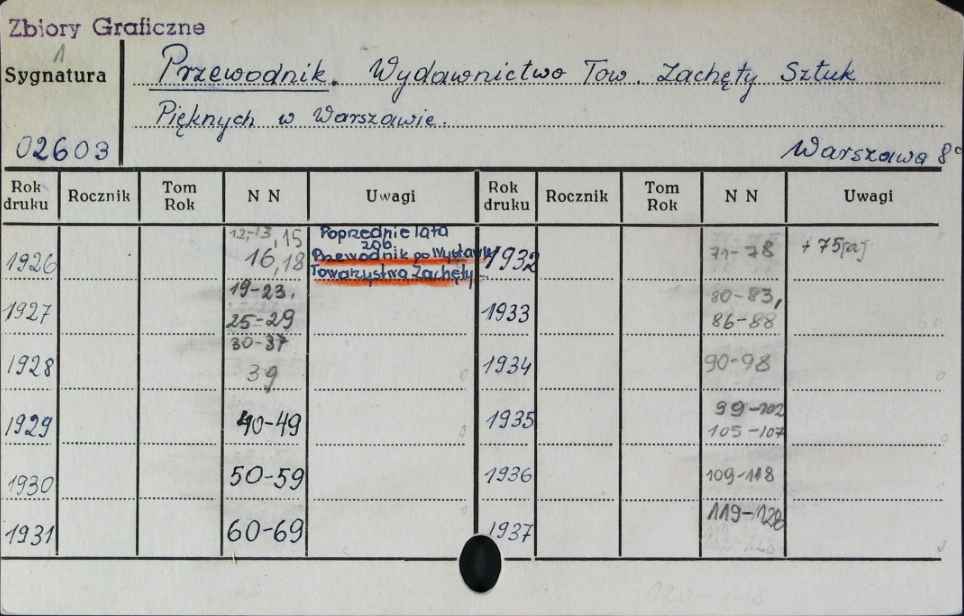 Zbiory Graficzne
1
Sygnatura
Przewodnik. Wydawnictwo Tow. Zachęty Sztuk
Pięknych w Warszawie.
02603
Warszawa 8°
Rok druku Rocznik Tom Rok N N Uwagi Rok druku Rocznik Tom Rok N N Uwagi
1926 12-13, 15 16, 18 Poprzednie lata zob. Przewodnik po Wystawie Towarzystwa Zachęty 1932 71-78
1927 19-23. 25-29 1933 80-83, 86-88
1928 30-37 39 1934 90-98
1929 40-49 1935 99-102 105-107
1930 50-59 1936 109-118
1931 60-69 1937 119-128